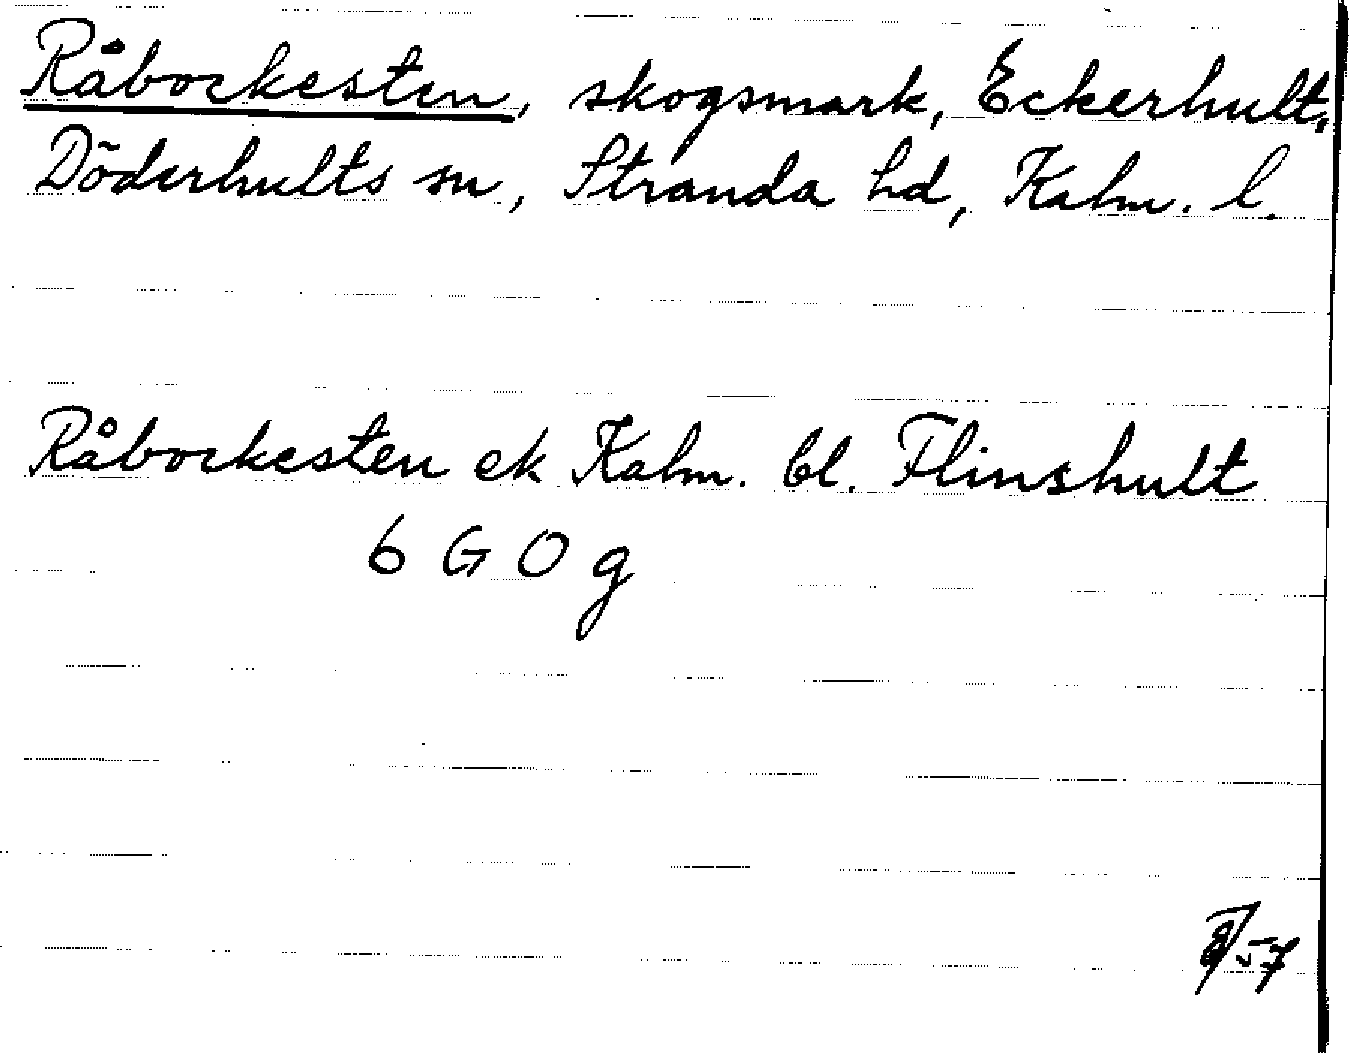 Råbockesten, skogsmark, Eckerhult,
Döderhults sn, Stranda hd, Kalm. l.
Råbockesten ek Kalm. bl. Flinshult
6 G O g